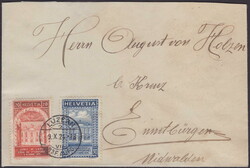 Herrn August von Holzen
b. Kreuz
Ennetbürgen
Nidwalden
HELVETIA
LUZERN